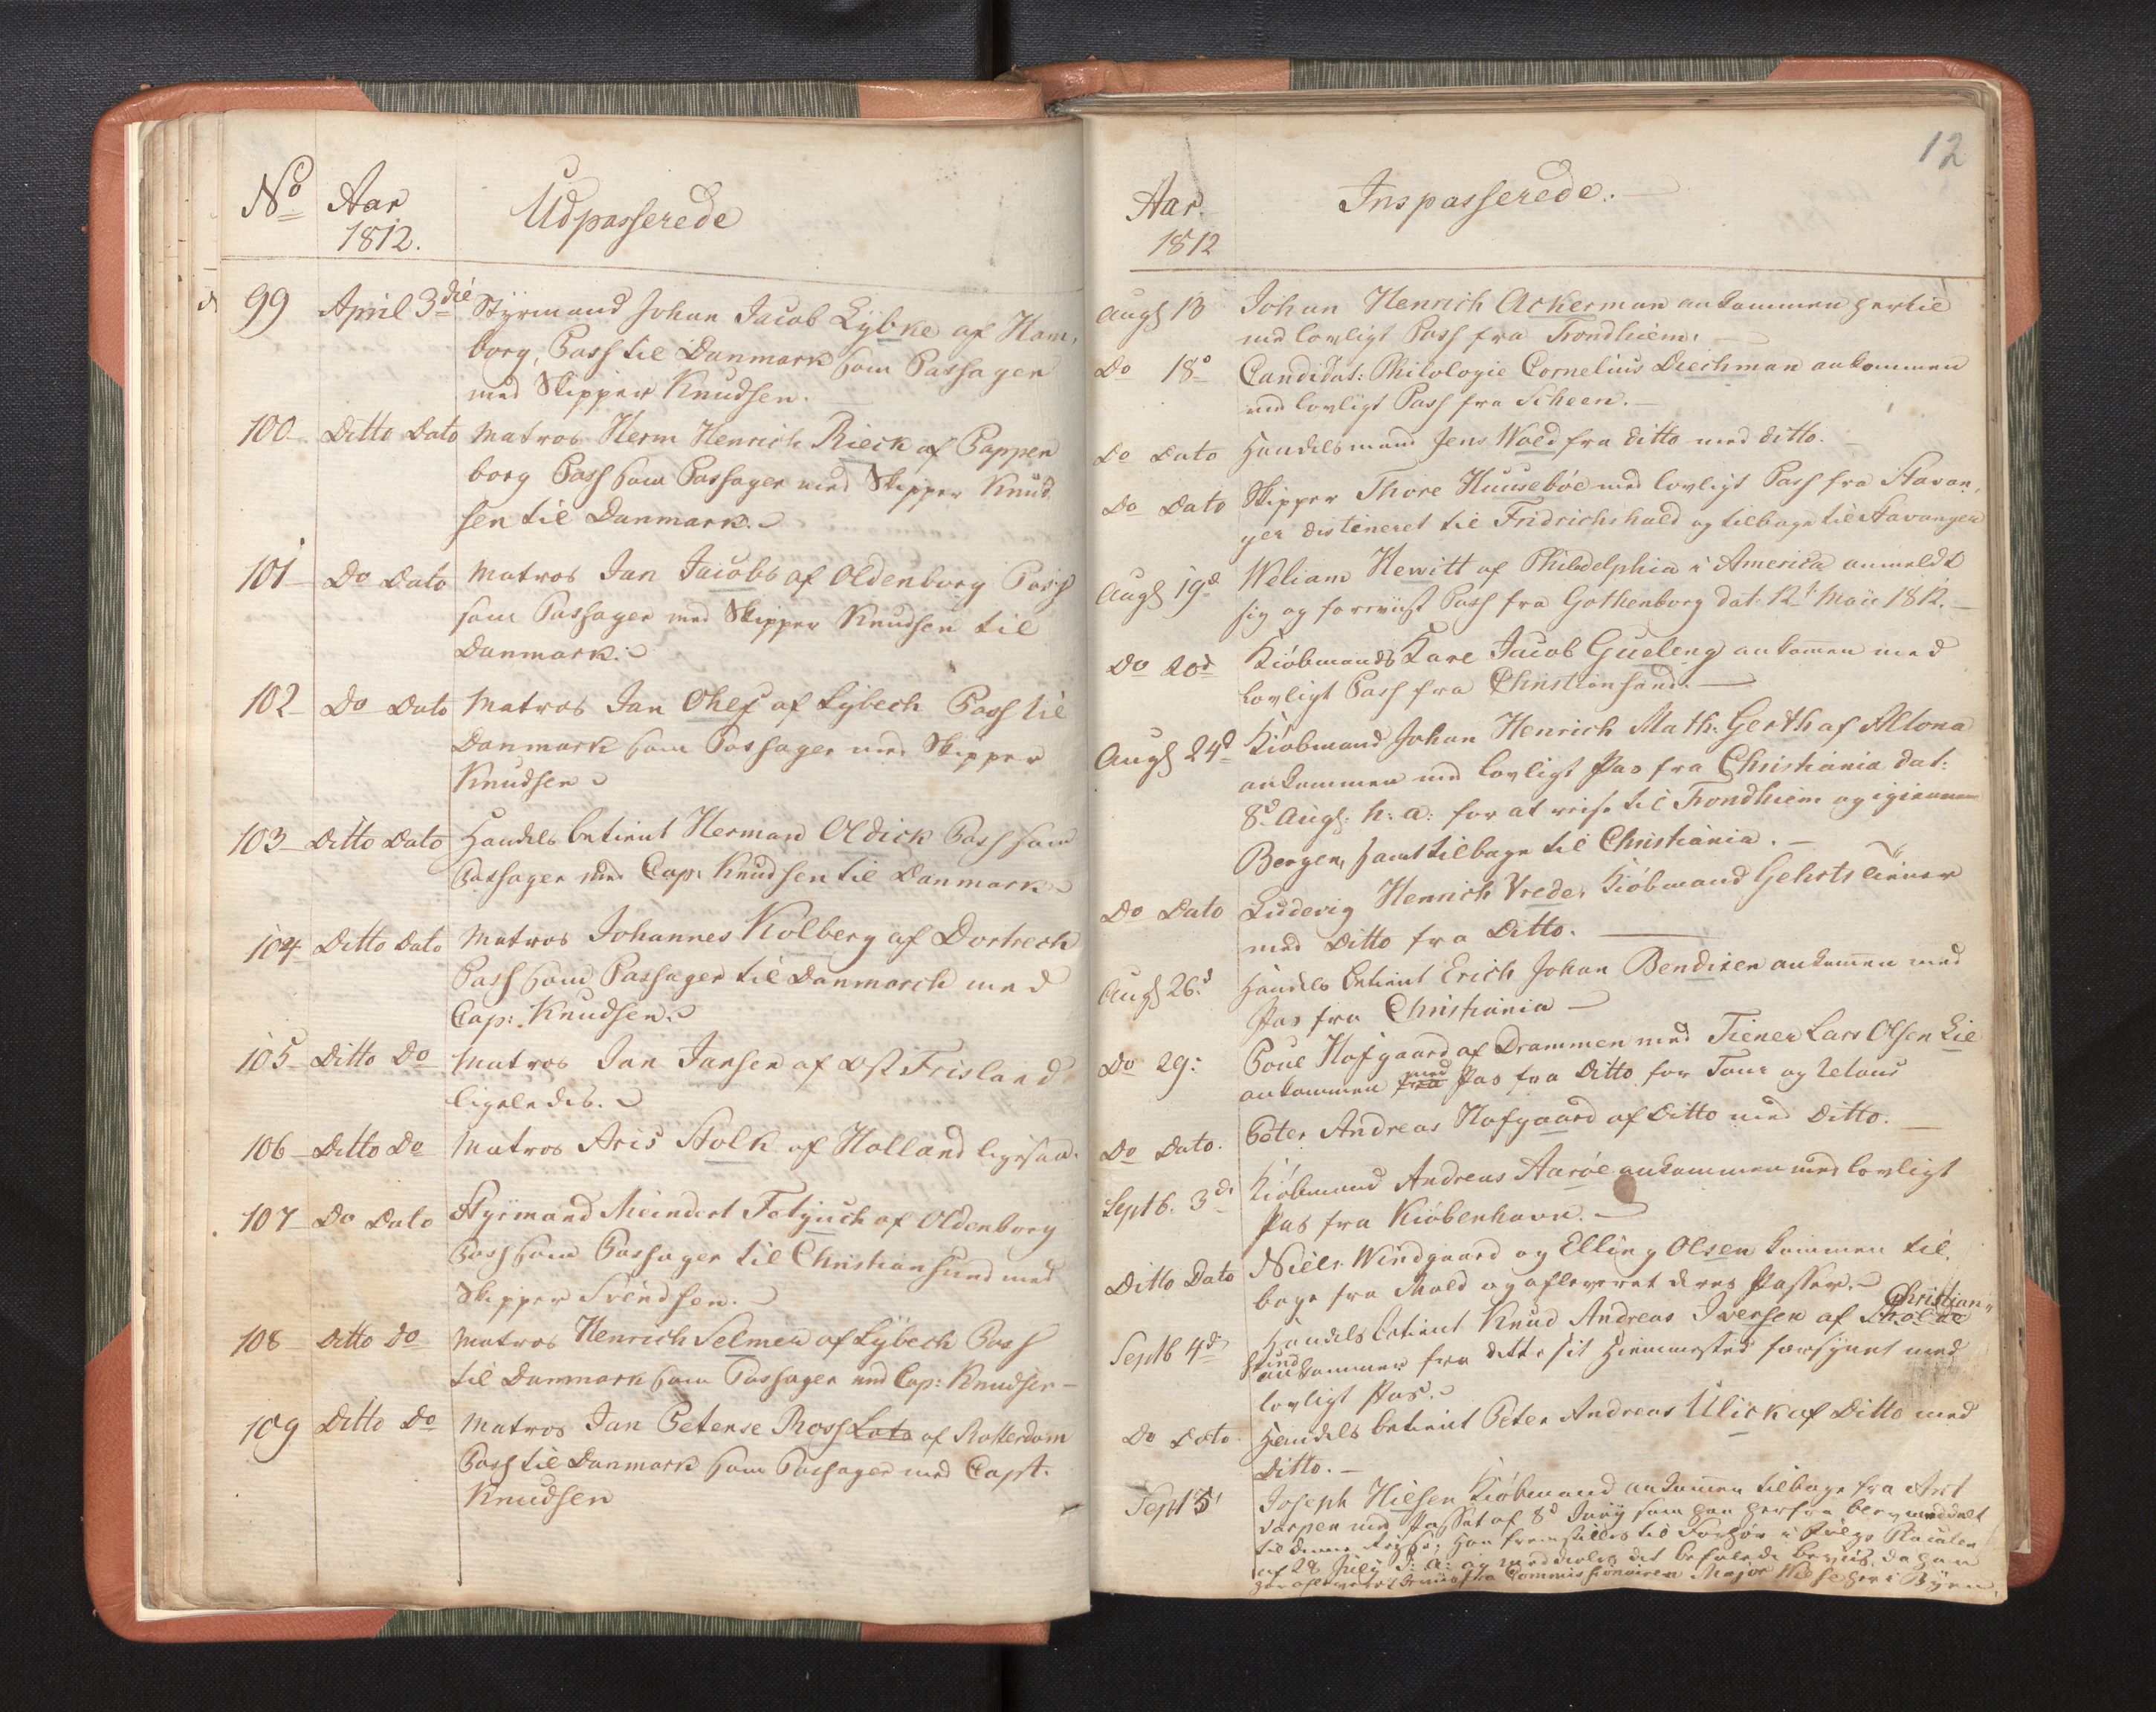 No Aar Udpasserede
1812.
99 April 3die Styrmand Johan Jacob Lybke af Ham,
borg, Pass til Danmark som Passager
med Skipper Knudsen.
100 Ditto Dato Matros Herm Henrich Rieck af Pappen
borg Pass som Passager med Skipper Knud
sen til Danmark.
101 Do Dato Matros Jan Jacobs af Oldenborg Pass
som Passager med Skipper Knudsen til
Danmark.
102 Do Dato Matros Jan Ohlf af Lybech Pass til
Danmark som Passager med Skipper
Knudsen
103 Ditto Dato Handels betient Herman Oldick Pass som
Passager med Cap: Knudsen til Danmark
104 Ditto Dato Matros Johannes Kolberg af Dortrech
Pass som Passager til Danmarck med
Cap: Knudsen.
105 Ditto Do Matros Jan Jansen af Ost Frisland
ligeledes.
106 Ditto Do Matros Aris Stolk af Holland ligesaa.
107 Do Dato Styrmand Meindert Fetjuch af Oldenborg
Pass som Passager til Christiansund med
Skipper Svendsen.
108 Ditto Do Matros Henrich Selmer af Lybech Pass
til Danmark som Passager med Cap: Knudsen
109 Ditto Do Matros Jan Petense Ross Lots af Rotterdam
Pass til Danmark som Passager med Capt.
Knudsen
12
Aar. Inspasserede.
1812
Augs 13 Johan Henrich Ackerman ankommen hertil
med lovligt Pass fra Trondhiem.
Do 18de Candidat: Philologie Cornelius Diechman ankommen
med lovligt Pass fra Scheen.
Do Dato Handelsmand Jens Wold fra ditto med ditto.
Do Dato Skipper Thore Huusebøe med lovligt Pass fra Stavan,
ger distineret til Fridrichshald og tilbage til Stavanger
Augs 19d Weliam Hewitt af Philadelphia i America anmeldt
sig og foreviist Pass fra Gothenborg dat: 12t Maii 1812.
Do 20d Kiøbmand Kare Jacob Gueleng ankomen med
Lovligt Pass fra Christiansand.
Augs 24d Kiøbmand Johan Henrich Math: Gerth af Altona
ankommen med lovligt Pas fra Christiania dat:
8d Augs: h: a: for at reise til Trondhiem og igiennem
Bergen, samt tilbage til Christiania.
Do Dato Ludevig Henrich Vrede, Kiøbmand Gehrts tiener
med Ditto fra Ditto.
Augs 26d Handels betient Erich Johan Bendixen ankomen med
Pas fra Christiania
Do 29: Poul Hofgaard af Drammen med Tiener Lars Olsen Lie
ankommen fra med Pas fra Ditto for Tour og Retour
Do Dato. Peter Andreas Hofgaard af Ditto med Ditto.
Septb. 3d Kiøbmand Andreas Aarøe ankommen med lovligt
Pas fra Kiøbenhavn.
Ditto Dato Niels Windgaard og Elling Olsen kommen til,
bage fra Mold og afleveret deres Passer.
Septb 4d Handels betient Knud Andreas Iversen af Molde Christian,,
sund ankommen fra dette sit Hiemmested forsynet med
lovligt Pas.
Do Dato Handels betient Peter Andreas Ulick af Ditto med
Ditto.
Sept 5 Joseph Nielsen Kiøbmand ankommen tilbage fra Art
darpen med Passet af 8d Juny som han herfra blev meddelt
til denne Reise; Han fremstilledes til Forhør i Følge Placaten
af 28 July d: a: og meddeeles det befalede beviis, da han